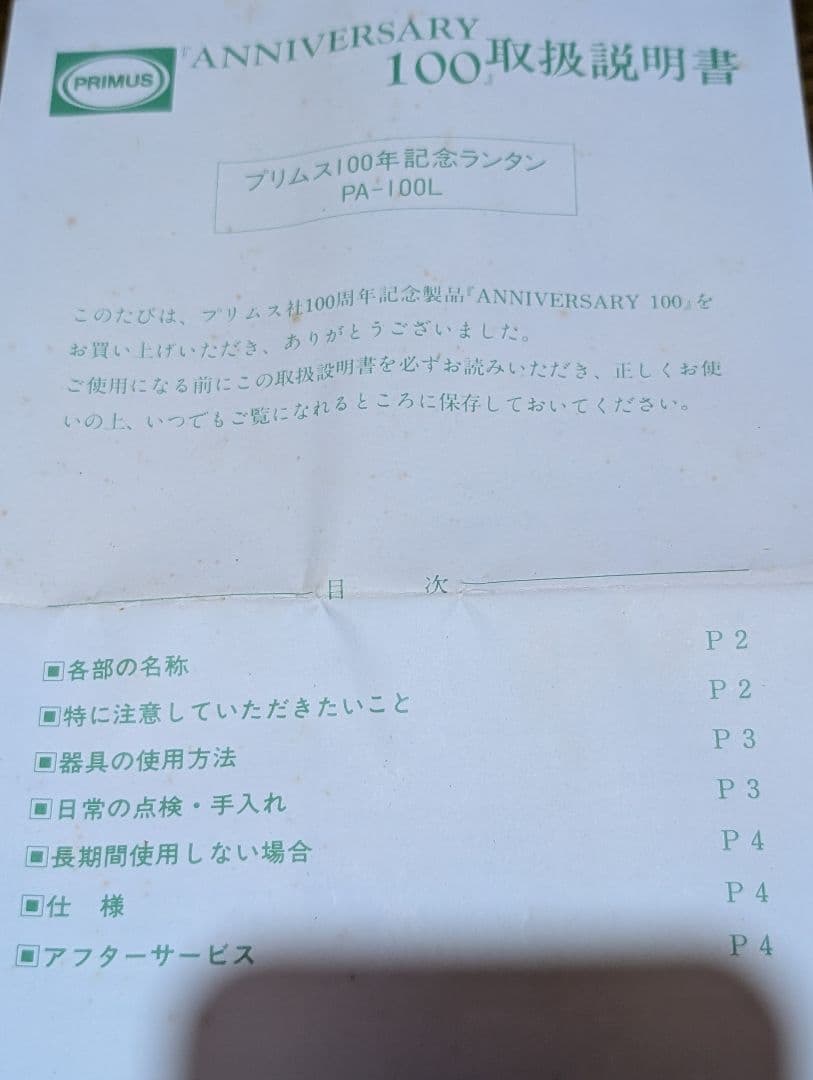 PRIMUS
『ANNIVERSARY 100』取扱説明書
プリムス100年記念ランタン
PA-100L
このたびは、プリムス社100周年記念製品『ANNIVERSARY 100』を
お買い上げいただき、ありがとうございました。
ご使用になる前にこの取扱説明書を必ずお読みいただき、正しくお使
いの上、いつでもご覧になれるところに保存しておいてください。
目 次
▣各部の名称 P 2
▣特に注意していただきたいこと P 2
▣器具の使用方法 P 3
▣日常の点検・手入れ P 3
▣長期間使用しない場合 P 4
▣仕 様 P 4
▣アフターサービス P 4